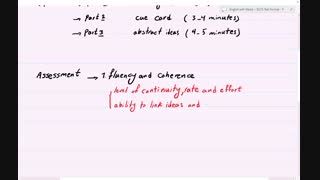 → Part 2 cue card (3-4 minutes)
→ Part 3 abstract ideas (4-5 minutes)
Assessment → 1. fluency and coherence
level of continuity, rate and effort
ability to link ideas and